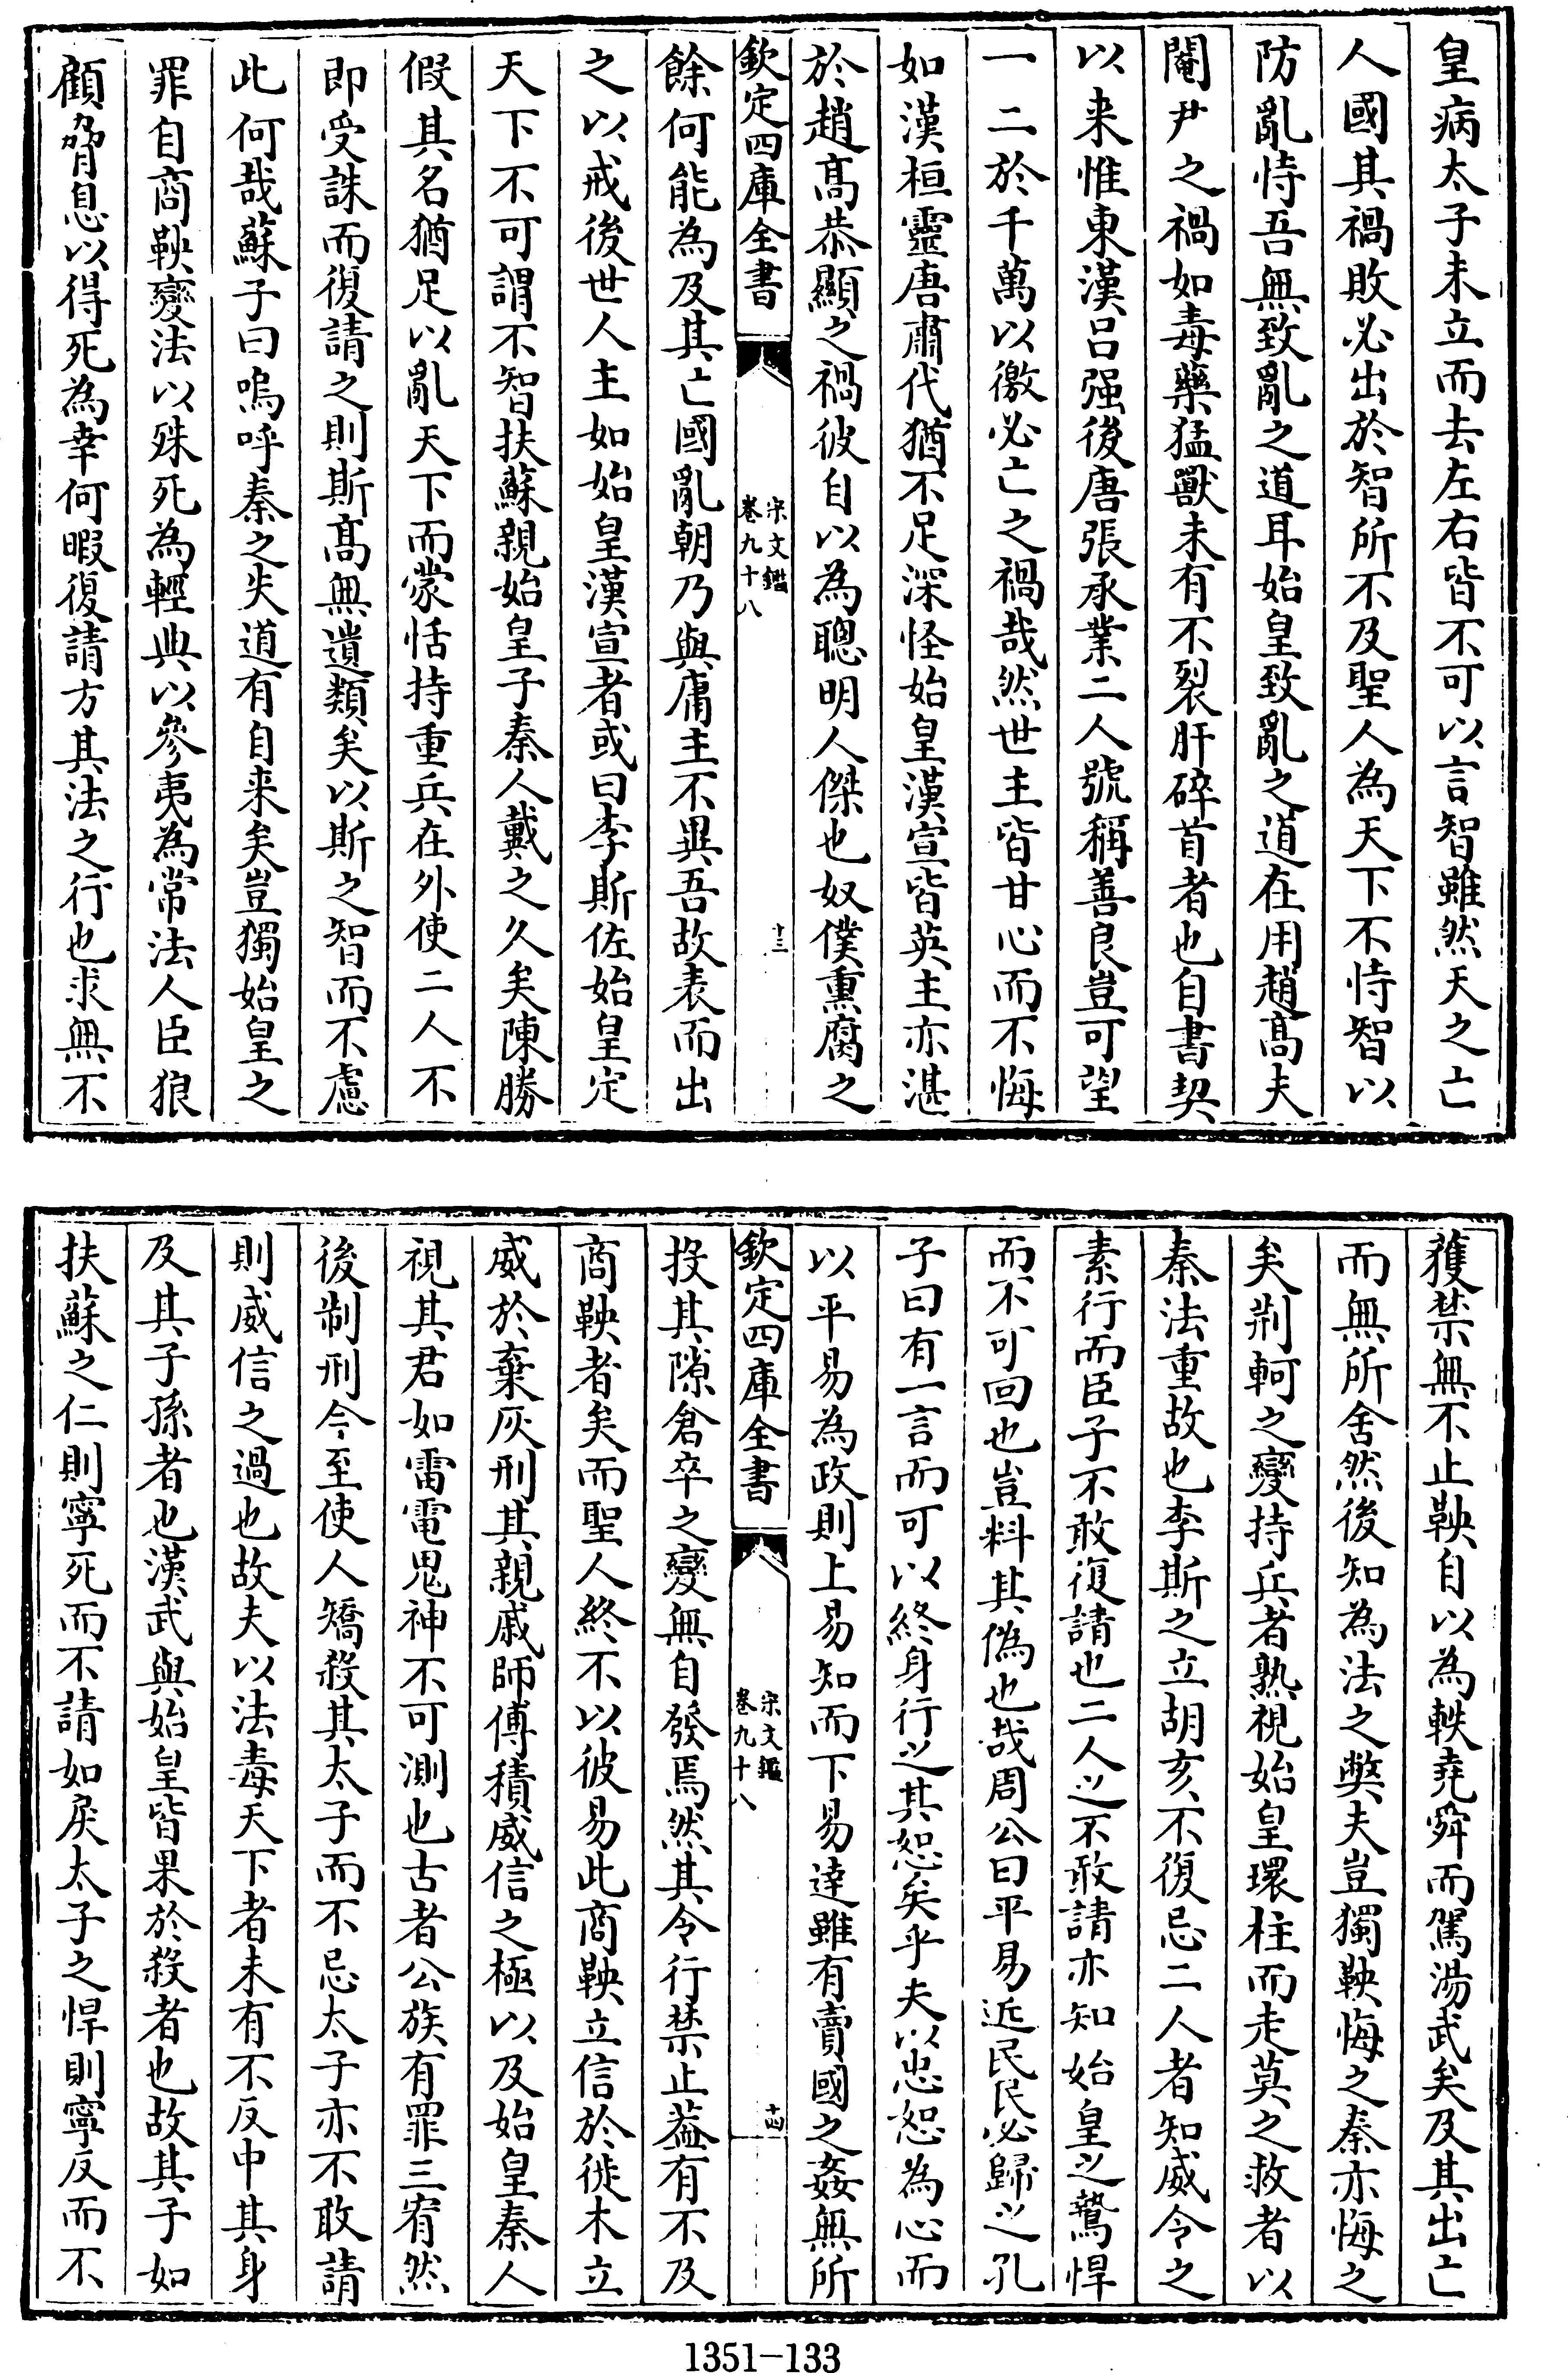 皇病太子未立而去左右皆不可以言智雖然天之亡
人國其禍敗必出於智所不及聖人為天下不恃智以
防亂恃吾無致亂之道耳始皇致亂之道在用趙高夫
閹尹之禍如毒藥猛獸未有不裂肝碎首者也自書契
以来惟東漢呂强後唐張承業二人號稱善良豈可望
一二於千萬以徼必亡之禍哉然世主皆甘心而不悔
如漢桓靈唐肅代猶不足深怪始皇漢宣皆英主亦湛
於趙髙恭顯之禍彼自以為聰明人傑也奴僕熏腐之
欽定四庫全書
宋文鑑
卷九十八
十三
餘何能為及其亡國亂朝乃與庸主不異吾故表而出
之以戒後世人主如始皇漢宣者或曰李斯佐始皇定
天下不可謂不智扶蘇親始皇子秦人戴之久矣陳勝
假其名猶足以亂天下而蒙恬持重兵在外使二人不
即受誅而復請之則斯髙無遺類矣以斯之智而不慮
此何哉蘇子曰嗚呼秦之失道有自来矣豈獨始皇之
罪自商鞅變法以殊死為輕典以參夷為常法人臣狼
顧脅息以得死為幸何暇復請方其法之行也求無不
獲禁無不止鞅自以為軼堯舜而駕湯武矣及其出亡
而無所舍然後知為法之弊夫豈獨鞅悔之秦亦悔之
矣荆軻之變持兵者熟視始皇環柱而走莫之救者以
秦法重故也李斯之立胡亥不復忌二人者知威令之
素行而臣子不敢復請也二人之不敢請亦知始皇之鷙悍
而不可回也豈料其偽也哉周公曰平易近民民必歸之孔
子曰有一言而可以終身行之其恕矣乎夫以忠恕為心而
以平易為政則上易知而下易達雖有賣國之姦無所
欽定四庫全書
宋文鑑
卷九十八
十四
投其隙倉卒之變無自發焉然其令行禁止葢有不及
商鞅者矣而聖人終不以彼易此商鞅立信於徙木立
威於棄灰刑其親戚師傅積威信之極以及始皇秦人
視其君如雷電鬼神不可測也古者公族有罪三宥然
後制刑今至使人矯殺其太子而不忌太子亦不敢請
則威信之過也故夫以法毒天下者未有不反中其身
及其子孫者也漢武與始皇皆果於殺者也故其子如
扶蘇之仁則寧死而不請如戾太子之悍則寧反而不
1351-133